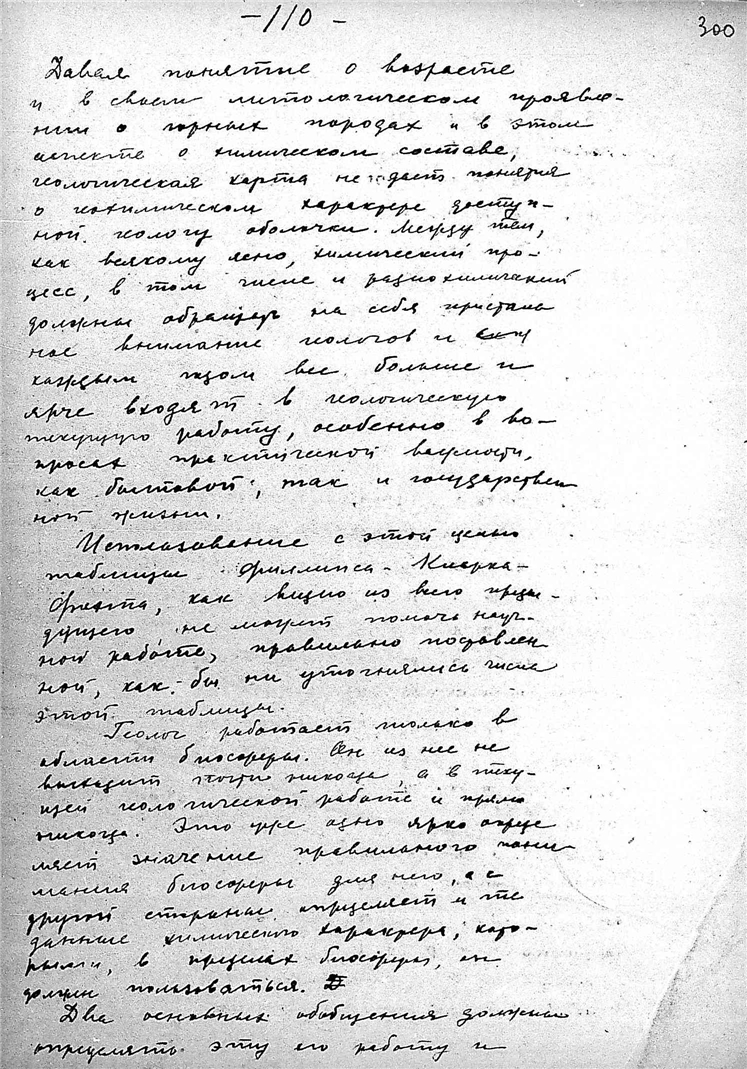 -110-
300
Давая понятие о возрасте
и в своем литологическом проявле-
нии о горных породах и в этом
аспекте о химическом составе,
геологическая карта не дает понятия
о геохимическом характере доступ-
ной геологу оболочки. Между тем,
как всякому ясно, химический про-
цесс, в том числе и радиохимический
должны обращать на себя пристал
ное внимание геологов и
каждым годом все больше и
ярче входят в геологическую
текущую работу, особенно в во-
просах практической важности,
как бытовой, так и государствен
ной жизни.
Использование с этой целью
таблицы Филлипса-Кларка-
Фохта, как видно из всего преды-
дущего не может помочь науч-
ной работе, правильно поставлен
ной, как бы ни уточнялись числа
этой таблицы.
Геолог работает только в
области биосферы. Он из нее не
выходит почти никогда, а в теку-
щей геологической работе и прямо
никогда. Это уже одно ярко опреде
ляет значение правильного пони
мания биосферы для него, а с
другой стороны определяет и те
данные химического характера, кото-
рыми, в пределах биосферы, он
должен пользоваться.
Два основных обобщения должны
определять эту его работу и